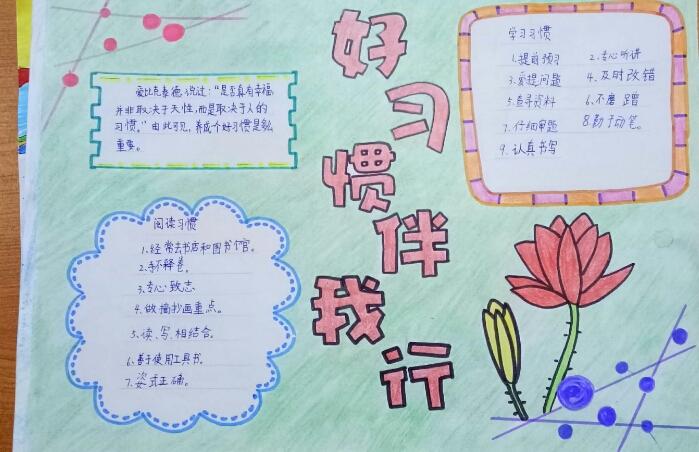 好习惯伴我行
爱比克泰德说过：“是否真有幸福
并非取决于天性，而是取决于人的
习惯。”由此可见，养成个好习惯是多么
重要。
学习习惯
1.提前预习 2.专心听讲
3.爱提问题 4.及时改错
5.查寻资料 6.不磨蹭
7.仔细审题 8.勤于动笔。
9.认真书写
阅读习惯
1.经常去书店和图书馆。
2.手不释卷。
3.专心致志
4.做摘抄画重点。
5.读、写、相结合。
6.善于使用工具书。
7.姿式正确。